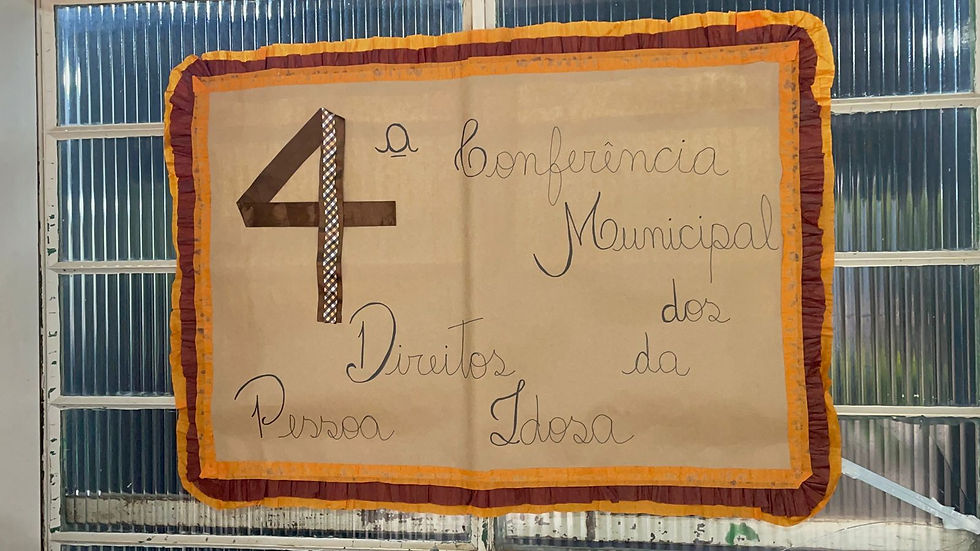 4ª Conferência
Municipal
dos
Direitos da
Pessoa Idosa